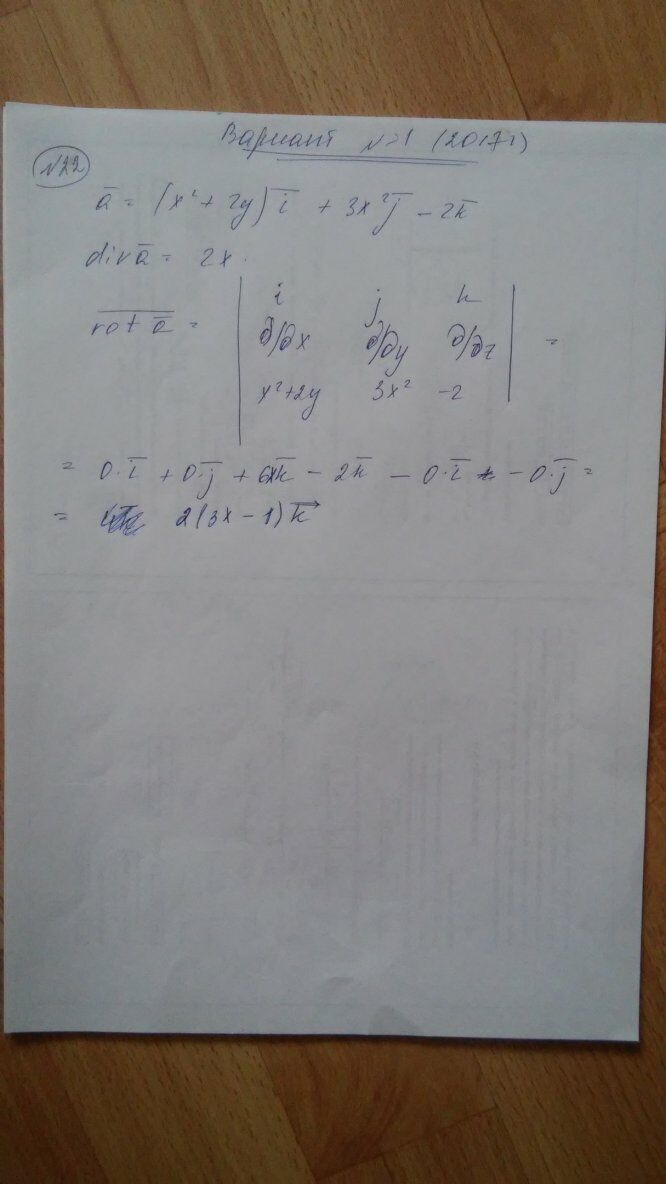 Вариант №21 (2017г)
№22
ā = (x² + 2y) i̅ + 3x² j̅ - 2k̅
div ā = 2x.
rot ā = | i j k |
| ∂/∂x ∂/∂y ∂/∂z | =
| x²+2y 3x² -2 |
= 0·i̅ + 0·j̅ + 6xk̅ - 2k̅ - 0·i̅ - 0·j̅ =
= 2(3x - 1)k⃗